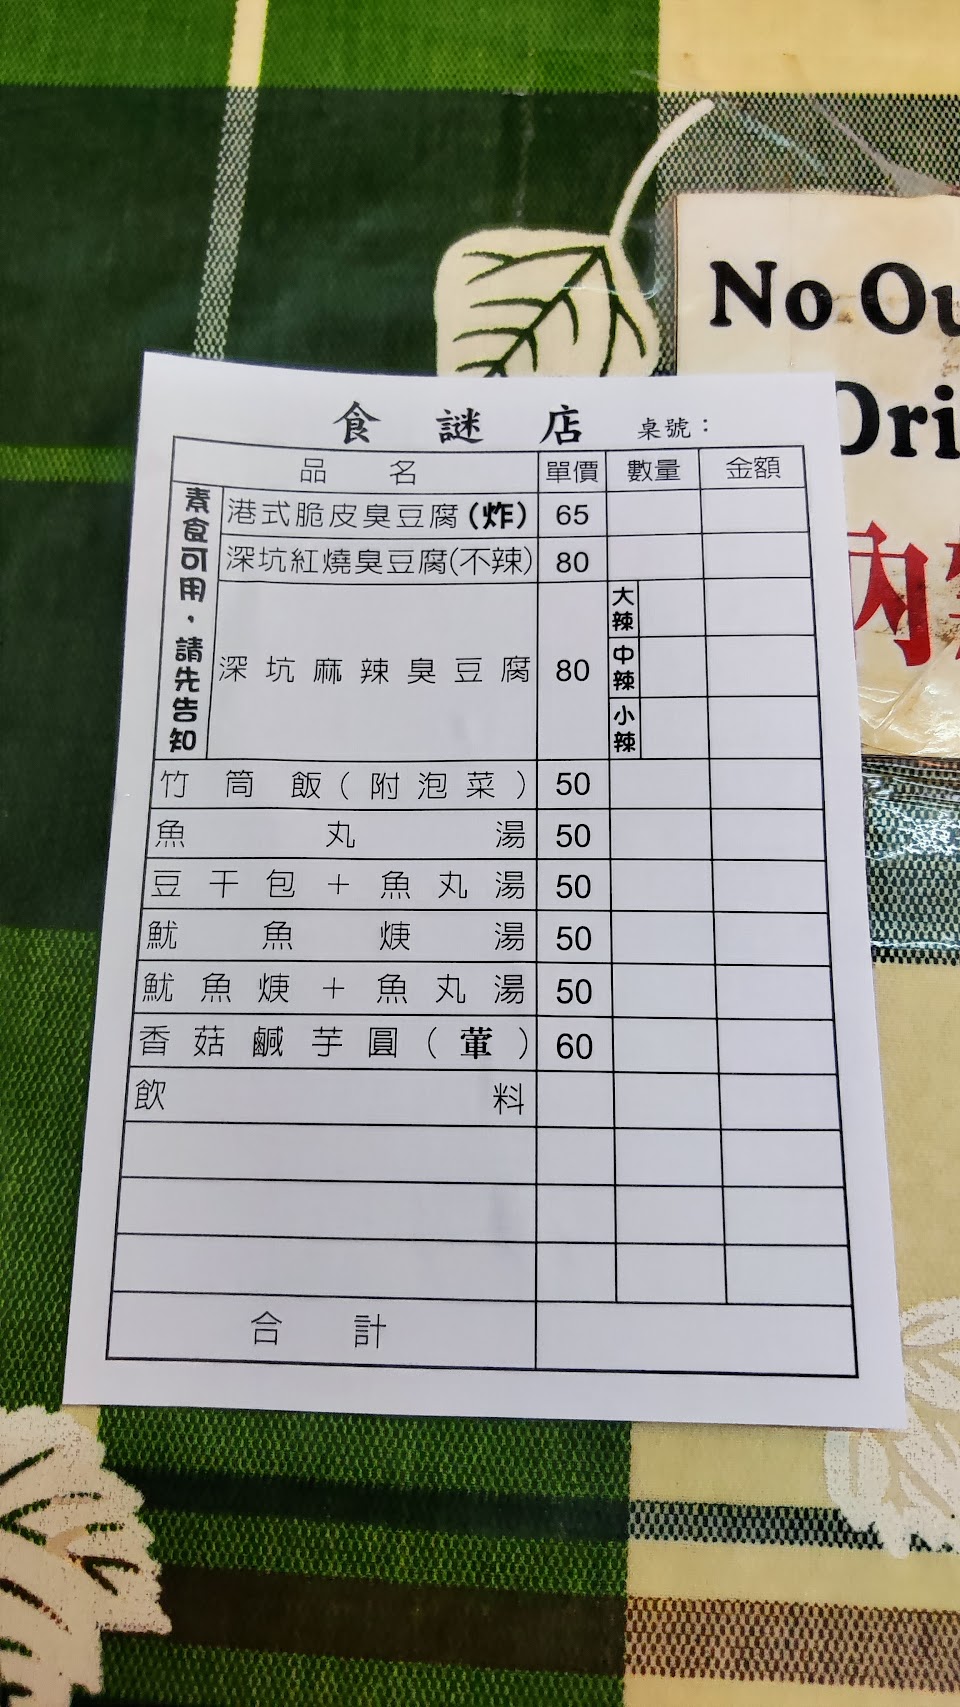 No Ou
Ori
內
食謎店 桌號：
品名 單價 數量 金額
素食可用，請先告知
港式脆皮臭豆腐(炸) 65
深坑紅燒臭豆腐(不辣) 80
深坑麻辣臭豆腐 80
大辣
中辣
小辣
竹筒飯(附泡菜) 50
魚丸湯 50
豆干包+魚丸湯 50
魷魚焿湯 50
魷魚焿+魚丸湯 50
香菇鹹芋圓(葷) 60
飲料
合計